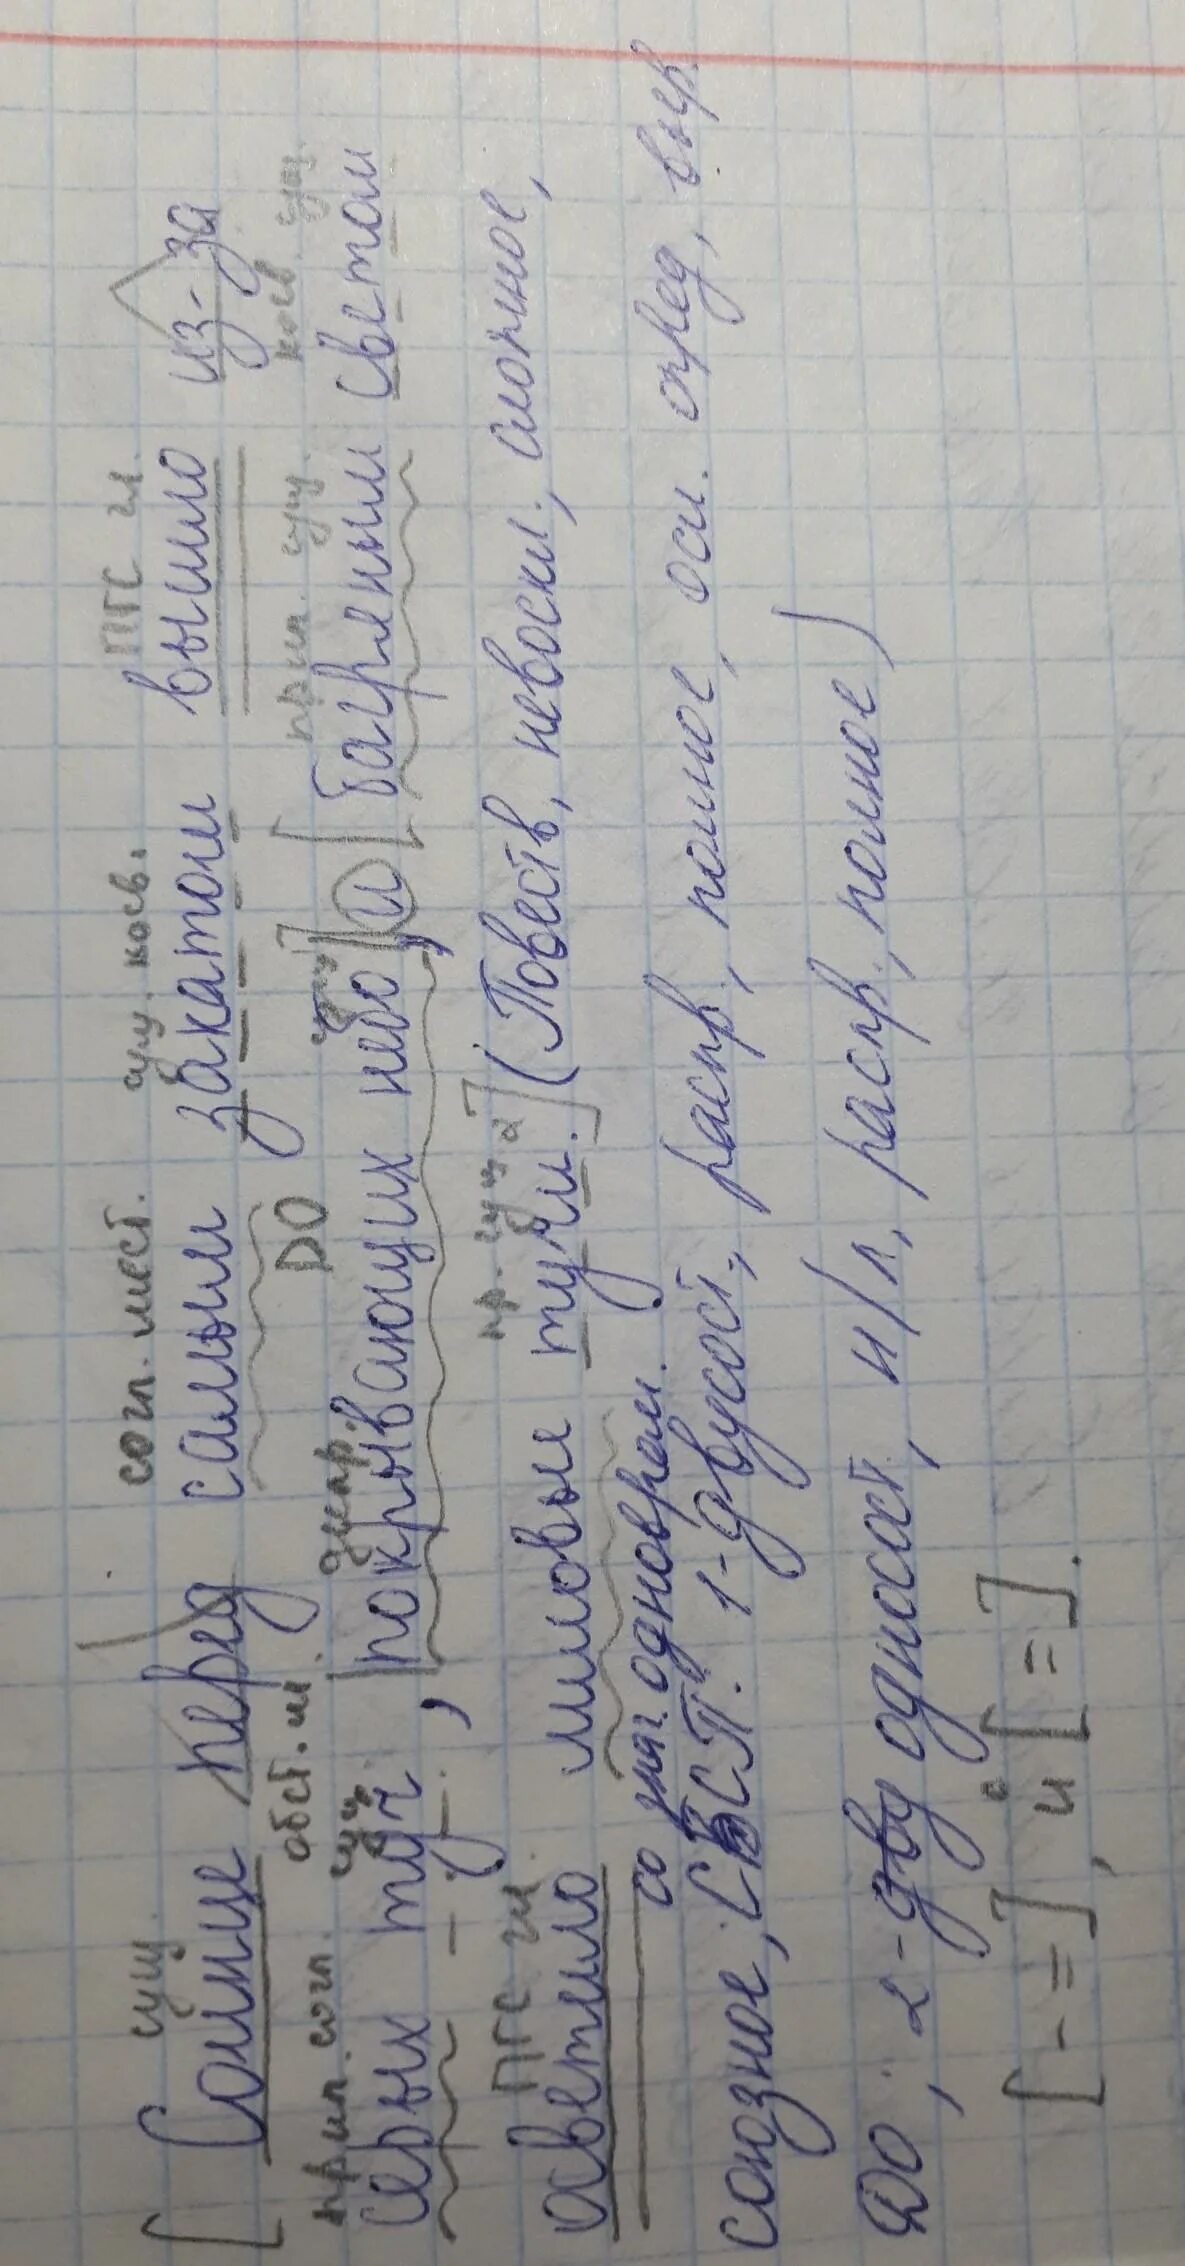 сущ. согл. мест. сущ. косв. ПГС гл.
[Солнце перед самым закатом вышло из-за
прил. согл. обст. м. сущ. деепр. ДО сущ. прил. сущ. косв. сущ.
серых туч, |покрывающих небо,|] и [багряным светом
ПГС гл. пр. сущ. 2
осветило лиловые тучи.] (Повеств, невоскл., сложное,
со знач. одноврем.
союзное, ССП. 1-двусост., распр., полное, осл. опред, выр.
ДО, 2-дву односост, н/л, распр., полное)
[-=], и [=].